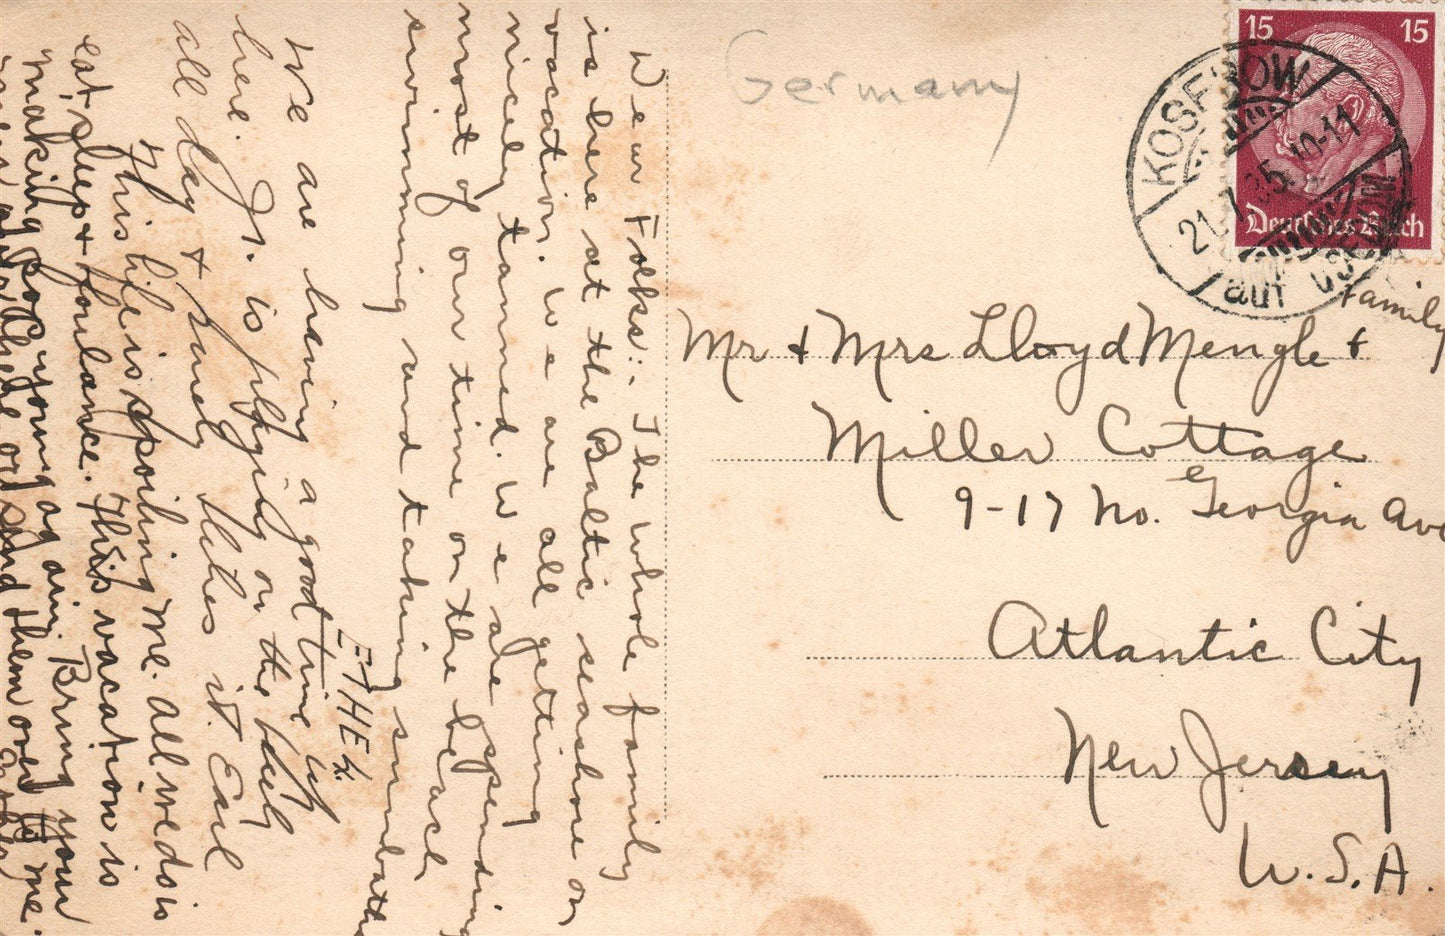 Germany
15 15
Deutsches Reich
KOSEROW
21.7.35. 10-11
auf USEDOM
Mr + Mrs Lloyd Mengle +
Family
Miller Cottage
9-17 No. Georgia Ave
Atlantic City
New Jersey
U.S.A.
Dear Folks:- The whole family
is here at the Baltic seashore on
vacation. We are all getting
nicely tanned. We are spending
most of our time on the beach
swimming and taking sunbaths
ETHEL
We are having a good time
here. Jr. is playing on the
all day + surely likes it. Earl
This life is spoiling me. All we do is
eat, sleep + This vacation is
making you young again. Bring your
or send them over to me.